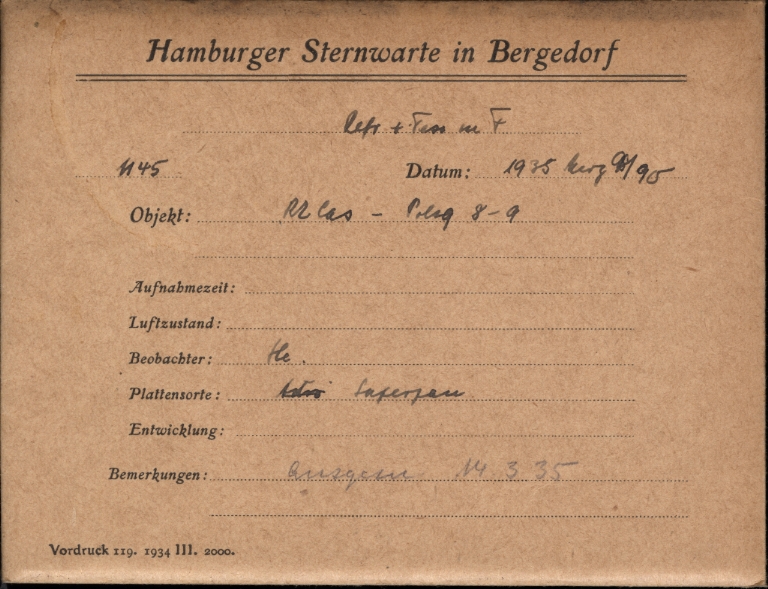 Hamburger Sternwarte in Bergedorf
Refr + Tess m F
1145
Datum: 1935 März
Objekt: RZ Cas – 8–9
Aufnahmezeit:
Luftzustand:
Beobachter: He.
Plattensorte: Superpan
Entwicklung:
Bemerkungen: ausgem 14 3 35
Vordruck 119. 1934 III. 2000.